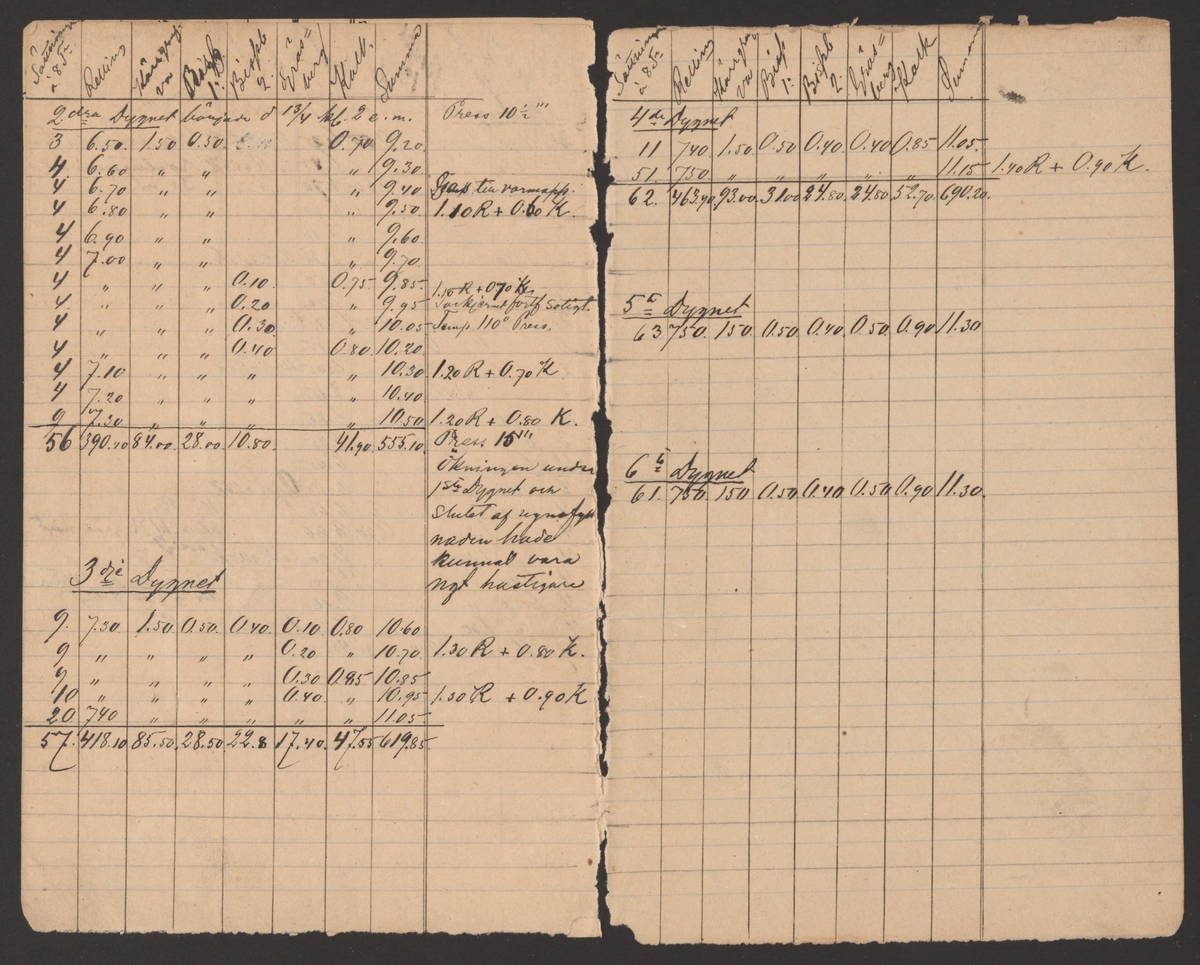 à 85 Relling Bispb 1. Bispb 2. Gräs= berg Kalk. Summa
2dra Dygnet började d 13/4 kl. 2 e.m. Press 10½'''
3 6.50. 1.50 0.50. 0.70 9.20.
4 6.60 „ „ „ 9.30
4 6.70 „ „ „ 9.40
4 6.80 „ „ „ 9.50 1.10 R + 0.60 K.
4 6.90 „ „ „ 9.60
4 7.00 „ „ „ 9.70
4 „ „ „ 0.10 0.75 9.85 1.10 R + 070 K.
4 „ „ „ 0.20 „ 9.95 fortf sotigt.
4 „ „ „ 0.30 „ 10.05 Temp. 110° Press.
4 „ „ „ 0.40 0.80 10.20
4 7.10 „ „ „ „ 10.30 1.20 R + 0.70 K
4 7.20 „ „ „ „ 10.40
9 7.30 „ „ „ „ 10.50 1.20 R + 0.80 K.
56 390.40 84.00 28.00 10.80. 41.90 555.10 Press 15'''
Ökningen under
1sta Dygnet och
Slutet af
naden hade
kunnat vara
ngt hastigare
3dje Dygnet
9. 7.30 1.50 0.50. 0.40 0.10 0.80 10.60
9 „ „ „ „ 0.20 „ 10.70 1.30 R + 0.80 K.
9 „ „ „ „ 0.30 0.85 10.85
10 „ „ „ „ 0.40. „ 10.95 1.30 R + 0.90 K
20 740 „ „ „ „ „ 11.05.
57. 418.10 85.50 28.50 22.8 17.40. 47.55 619.85
à 85 Relling Bispb 1. Bispb 2. Gräs= berg Kalk Summa
4de Dygnet
11 740 1.50 0.50 0.40 0.40 0.85 11.05.
51. 750 „ „ „ „ „ 11.15 1.40 R + 0.90 K.
62. 463.90 93.00 31.00 24.80. 24.80 52.70 690.20.
5te Dygnet
63 750. 150 0.50 0.40 0.50. 0.90 11.30
6te Dygnet
61. 750 150 0.50 0.40 0.50 0.90 11.30.